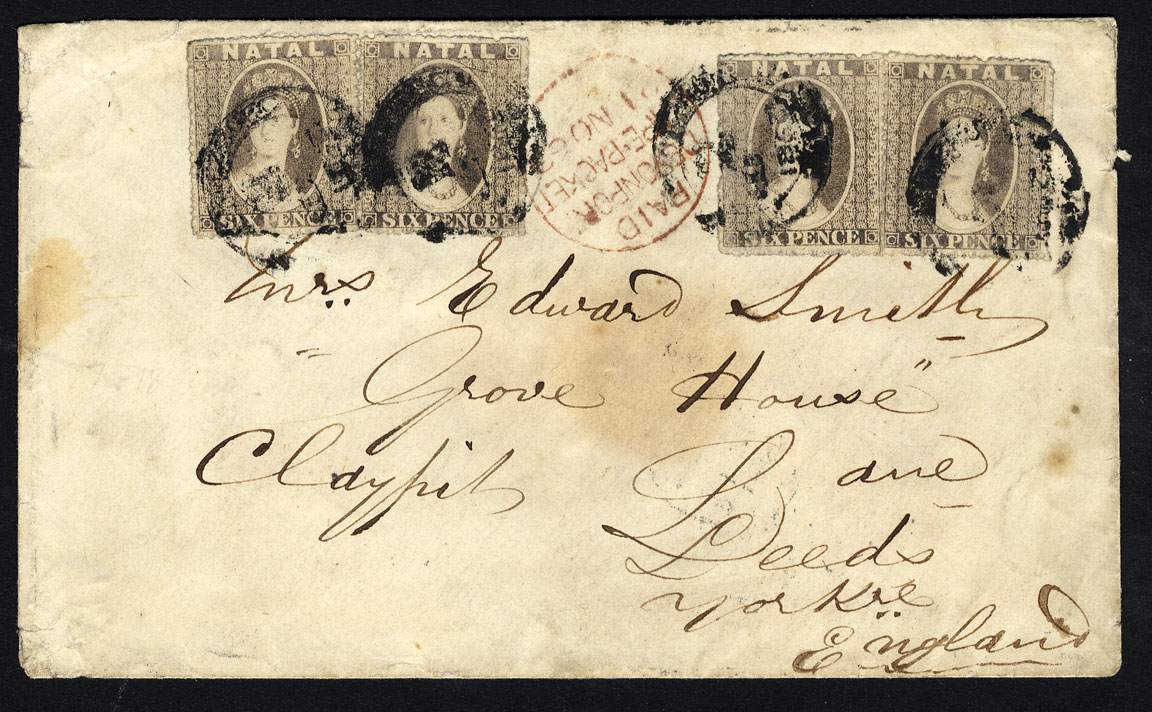 NATAL NATAL NATAL NATAL
SIX PENCE SIX PENCE SIX PENCE SIX PENCE
PAID
PACKET
NO
Mrs Edward Smith
"Grove House"
Claypit Lane
Leeds
Yorkre
England